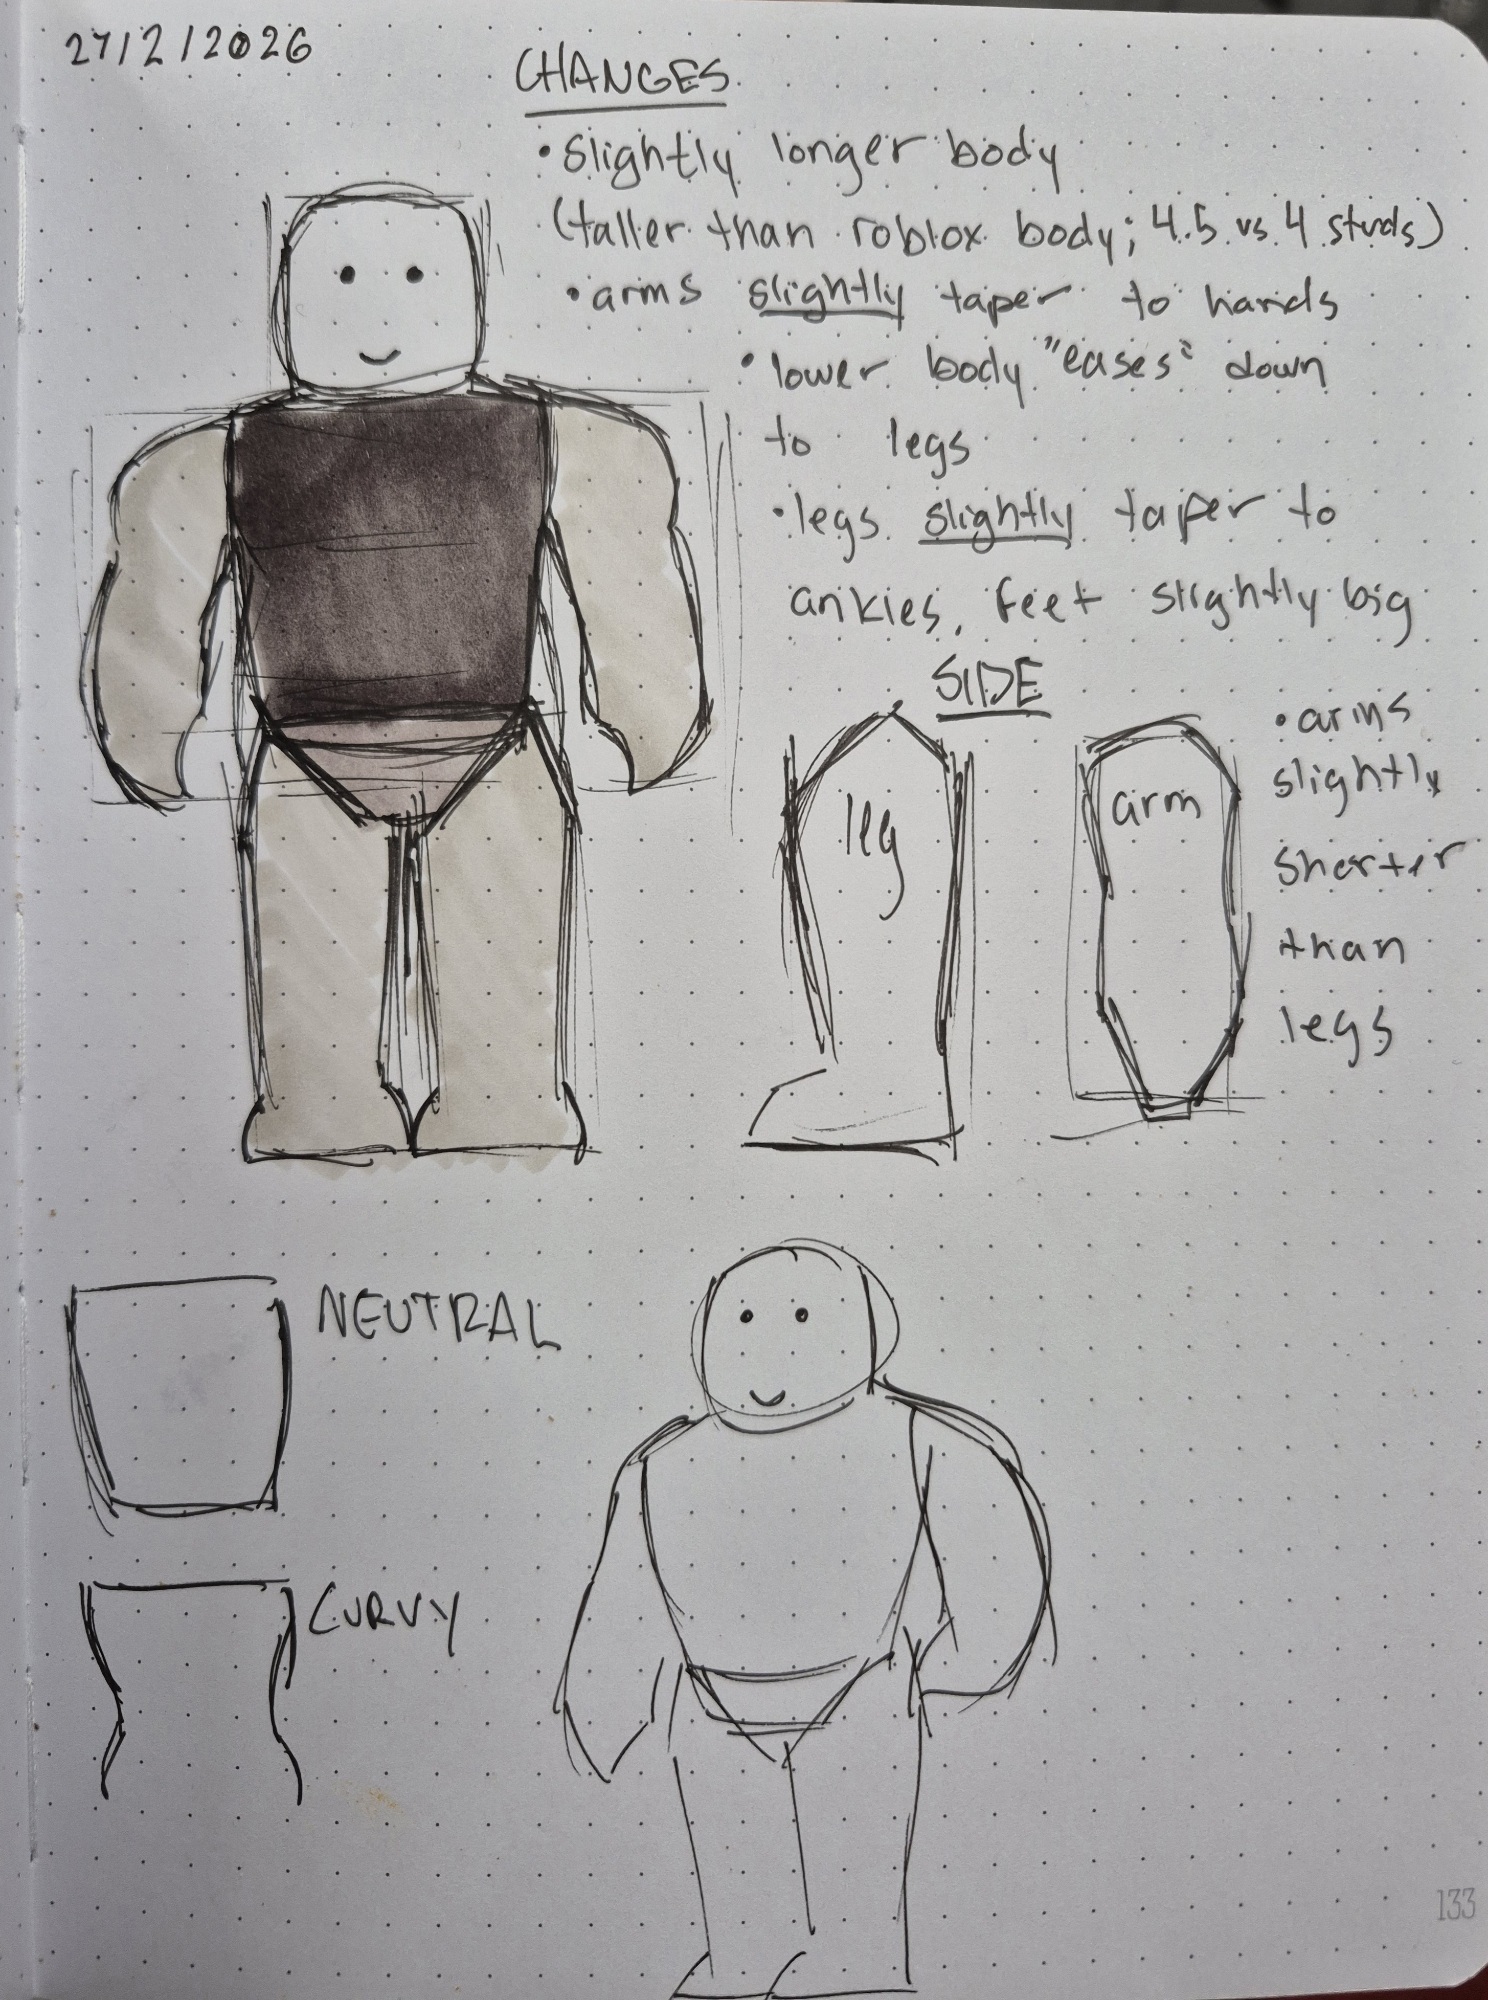 27/2/2026
CHANGES
• slightly longer body
(taller than roblox body; 4.5 vs 4 studs)
• arms slightly taper to hands
• lower body "eases" down
to legs
• legs slightly taper to
ankles, feet slightly big
SIDE
leg
arm
• arms
slightly
shorter
than
legs
NEUTRAL
CURVY
133